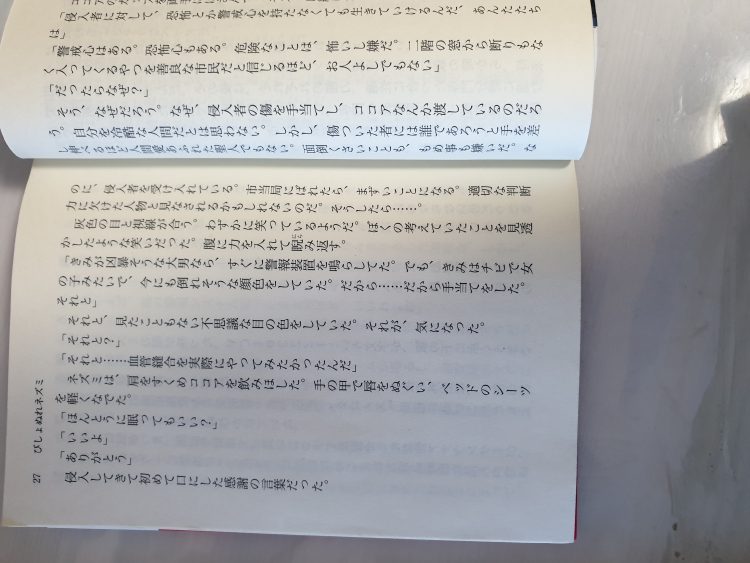 「侵入者に対して、恐怖とか警戒心を持たなくても生きていけるんだ、あんたたち
は」
「警戒心はある。恐怖心もある。危険なことは、怖いし嫌だ。二階の窓から断りもな
く入ってくるやつを善良な市民だと信じるほど、お人よしでもない」
「だったらなぜ？」
そう、なぜだろう。なぜ、侵入者の傷を手当てし、ココアなんか渡しているのだろ
う。自分を冷酷な人間だとは思わない。しかし、傷ついた者には誰であろうと手を差
し伸べるほど人間愛あふれた聖人でもない。面倒くさいことも、もめ事も嫌いだ。な
のに、侵入者を受け入れている。市当局にばれたら、まずいことになる。適切な判断
力に欠けた人物と見なされるかもしれないのだ。そうしたら……。
灰色の目と視線が合う。わずかに笑っているようだ。ぼくの考えていたことを見透
かしたような笑いだった。腹に力を入れて睨み返す。
「きみが凶暴そうな大男なら、すぐに警報装置を鳴らしてた。でも、きみはチビで女
の子みたいで、今にも倒れそうな顔色をしていた。だから……だから手当てをした。
それと」
それと、見たこともない不思議な目の色をしていた。それが、気になった。
「それと？」
「それと……血管縫合を実際にやってみたかったんだ」
ネズミは、肩をすくめココアを飲みほした。手の甲で唇をぬぐい、ベッドのシーツ
を軽くなでた。
「ほんとうに眠ってもいい？」
「いいよ」
「ありがとう」
侵入してきて初めて口にした感謝の言葉だった。
27
びしょぬれネズミ